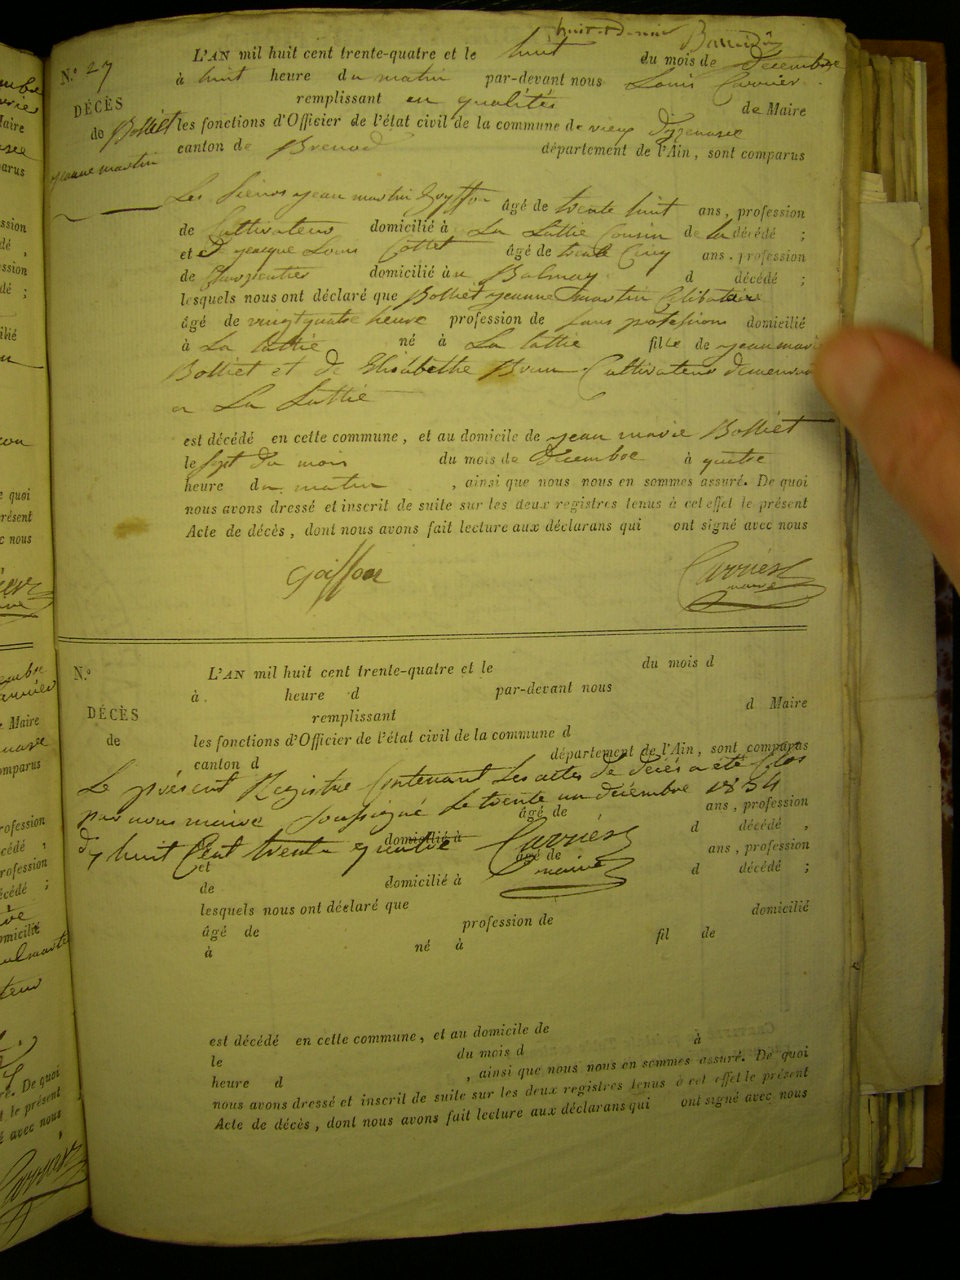 N.º 27
DÉCÈS
de Bolliet
jeanne martin
L'AN mil huit cent trente-quatre et le huit du mois de décembre
à huit heure du matin par-devant nous Louis Carrier
remplissant en qualités de Maire
les fonctions d'Officier de l'état civil de la commune de vieux d'izenave
canton de Brenod département de l'Ain, sont comparus
Les sieurs jean martin âgé de trente huit ans, profession
de Cultivateur domicilié à La Lattie cousin de la décédé ;
et jacque Louis Collet âgé de trente Cinq ans, profession
de Charpentier domicilié à Balmay d décédé ;
lesquels nous ont déclaré que Bolliet jeanne martin Célibataire
âgé de vingt quatre heure profession de sans profession domicilié
à La Lattie né à La Lattie fille de jean marie
Bolliet et de Elisabethe Brun Cultivateurs
a La Lattie
est décédé en cette commune, et au domicile de jean marie Bolliet
le sept du mois du mois de décembre à quatre
heure du matin , ainsi que nous nous en sommes assuré. De quoi
nous avons dressé et inscrit de suite sur les deux registres tenus à cet effet le présent
Acte de décès, dont nous avons fait lecture aux déclarans qui ont signé avec nous
Carrier
maire
N.º
DÉCÈS
de
L'AN mil huit cent trente-quatre et le du mois d
à heure d par-devant nous
remplissant d Maire
les fonctions d'Officier de l'état civil de la commune d
canton d département de l'Ain, sont comparus
Le présent Registre contenant Les actes de décès a été Clos
par nous maire soussigné Le trente un décembre 1834
âgé de ans, profession
huit Cent trente quatre Carrier
maire
domicilié à d décédé ,
et âgé de ans, profession
de domicilié à d décédé ;
lesquels nous ont déclaré que
âgé de profession de domicilié
à né à fil de
est décédé en cette commune, et au domicile de
le du mois d à
heure d , ainsi que nous nous en sommes assuré. De quoi
nous avons dressé et inscrit de suite sur les deux registres tenus à cet effet le présent
Acte de décès, dont nous avons fait lecture aux déclarans qui ont signé avec nous